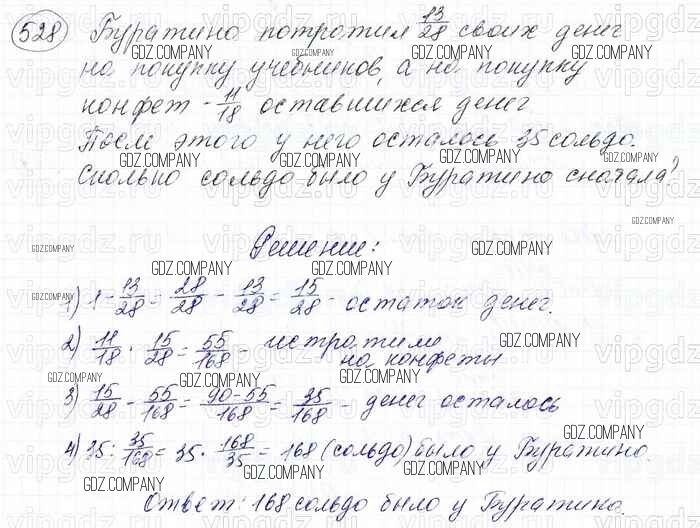 528 Буратино потратил 13/28 своих денег
на покупку учебников, а на покупку
конфет - 11/18 оставшихся денег
После этого у него осталось 35 сольдо.
Сколько сольдо было у Буратино сначала?
Решение:
1) 1 - 13/28 = 28/28 - 13/28 = 15/28 - остаток денег.
2) 11/18 · 15/28 = 55/168 - истратили
на конфеты
3) 15/28 - 55/168 = (90-55)/168 = 35/168 - денег осталось
4) 35 : 35/168 = 35 · 168/35 = 168 (сольдо) было у Буратино.
Ответ: 168 сольдо было у Буратино.
GDZ.COMPANY
vipgdz.ru